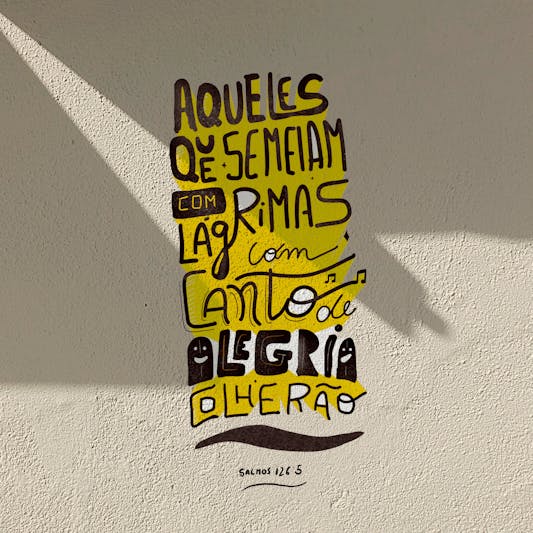 AQUELES
QUE SEMEIAM
COM
LÁGRIMAS
com
CANTO de
ALEGRIA
COLHERÃO
SALMOS 126 5